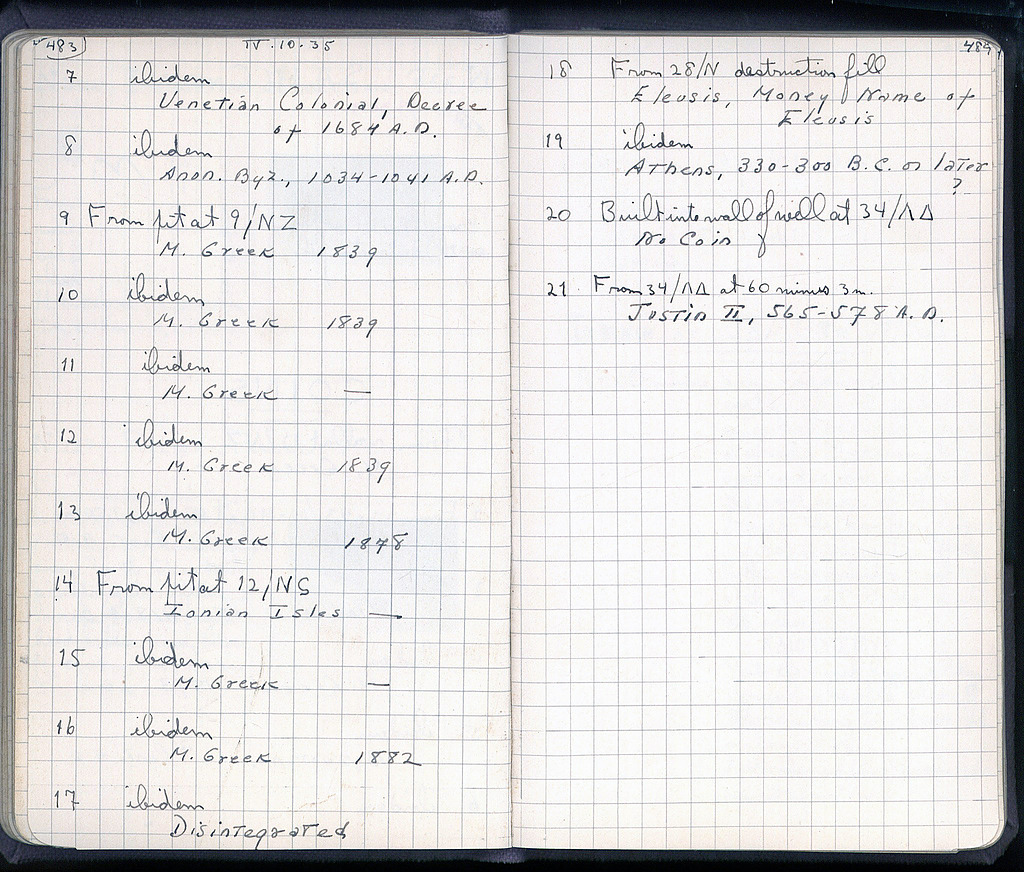 483
IV.10.35
7 ibidem
Venetian Colonial, Decree
of 1684 A.D.
8 ibidem
Anon. Byz., 1034-1041 A.D.
9 From pit at 9/NZ
M. Greek 1839
10 ibidem
M. Greek 1839
11 ibidem
M. Greek —
12 ibidem
M. Greek 1839
13 ibidem
M. Greek 1878
14 From pit at 12/NS
Ionian Isles —
15 ibidem
M. Greek —
16 ibidem
M. Greek 1882
17 ibidem
Disintegrated
484
18 From 28/N destruction fill
Eleusis, Money Name of
Eleusis
19 ibidem
Athens, 330-300 B.C. or later
?
20 Built into wall of well at 34/ΛΔ
No Coin
21 From 34/ΛΔ at 60 minus 3m.
Justin II, 565-578 A.D.